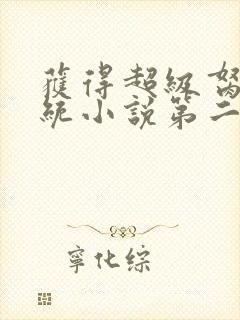 獲得超級
統小說第二
寧化綜